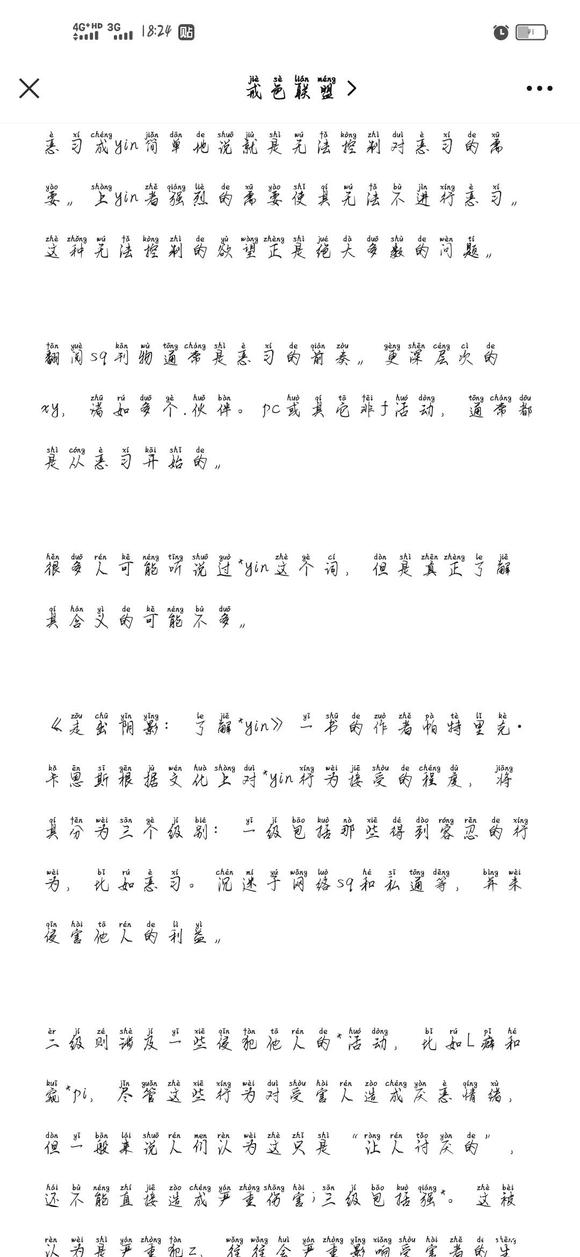 4G+HD 3G 18:24 贴
戒色联盟
恶习成yin简单地说就是无法控制对恶习的需
要。上yin者强烈的需要使其无法不进行恶习。
这种无法控制的欲望正是绝大多数的问题。
翻阅sq刊物通常是恶习的前奏。更深层次的
xy,诸如多个.伙伴。pc或其它非f活动,通常都
是从恶习开始的。
很多人可能听说过*yin这个词,但是真正了解
其含义的可能不多。
《走出阴影:了解*yin》一书的作者帕特里克·
卡恩斯根据文化上对*yin行为接受的程度,将
其分为三个级别:一级包括那些得到容忍的行
为,比如恶习。沉迷于网络sq和私通等,并未
侵害他人的利益。
二级则涉及一些侵犯他人的*活动,比如L癖和
窥*pi,尽管这些行为对受害人造成厌恶情绪,
但一般来说人们认为这只是“让人讨厌的”,
还不能直接造成严重伤害;三级包括强*。这被
认为是严重犯z,往往会严重影响受害者的生